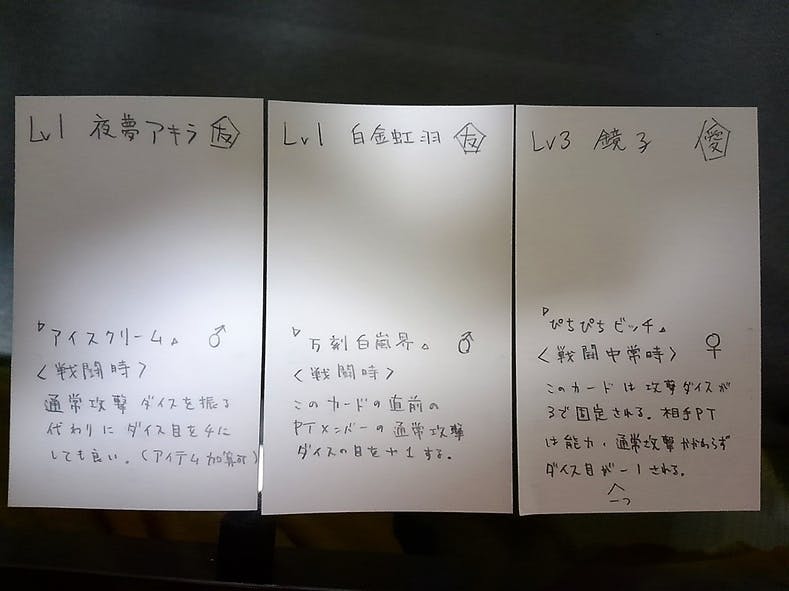 Lv1 夜夢アキラ 友
▷アイスクリーム△ ♂
〈戦闘時〉
通常攻撃ダイスを振る
代わりにダイス目を4に
しても良い。(アイテム加算可)
Lv1 白金虹羽 友
▷万刻白嵐界△ ♂
〈戦闘時〉
このカードの直前の
PTメンバーの通常攻撃
ダイスの目を+1する。
Lv3 鏡子 愛
▷ぴちぴちビッチ△ ♀
〈戦闘中常時〉
このカードは攻撃ダイスが
3で固定される。相手PT
は能力・通常攻撃かかわらず
ダイス目が-1される。
一つ